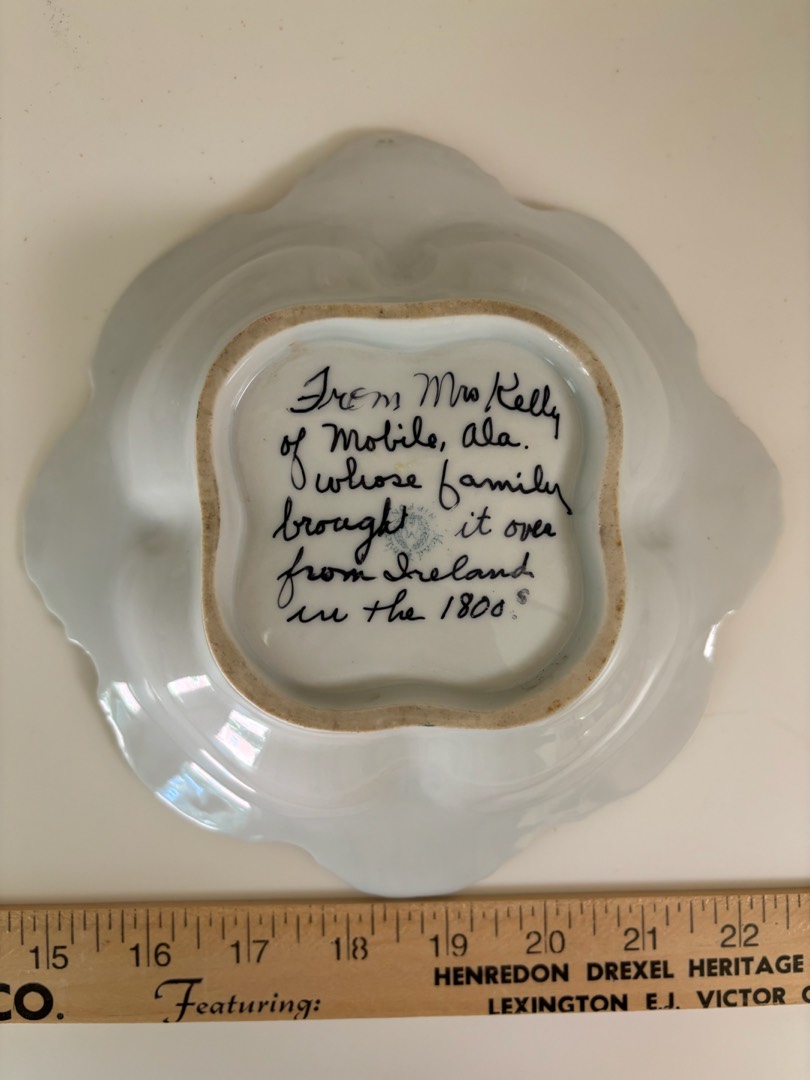 From Mrs Kelly
of Mobile, Ala.
whose family
brought it over
from Ireland
in the 1800s
15 16 17 18 19 20 21 22
CO. Featuring: HENREDON DREXEL HERITAGE
LEXINGTON E.J. VICTOR